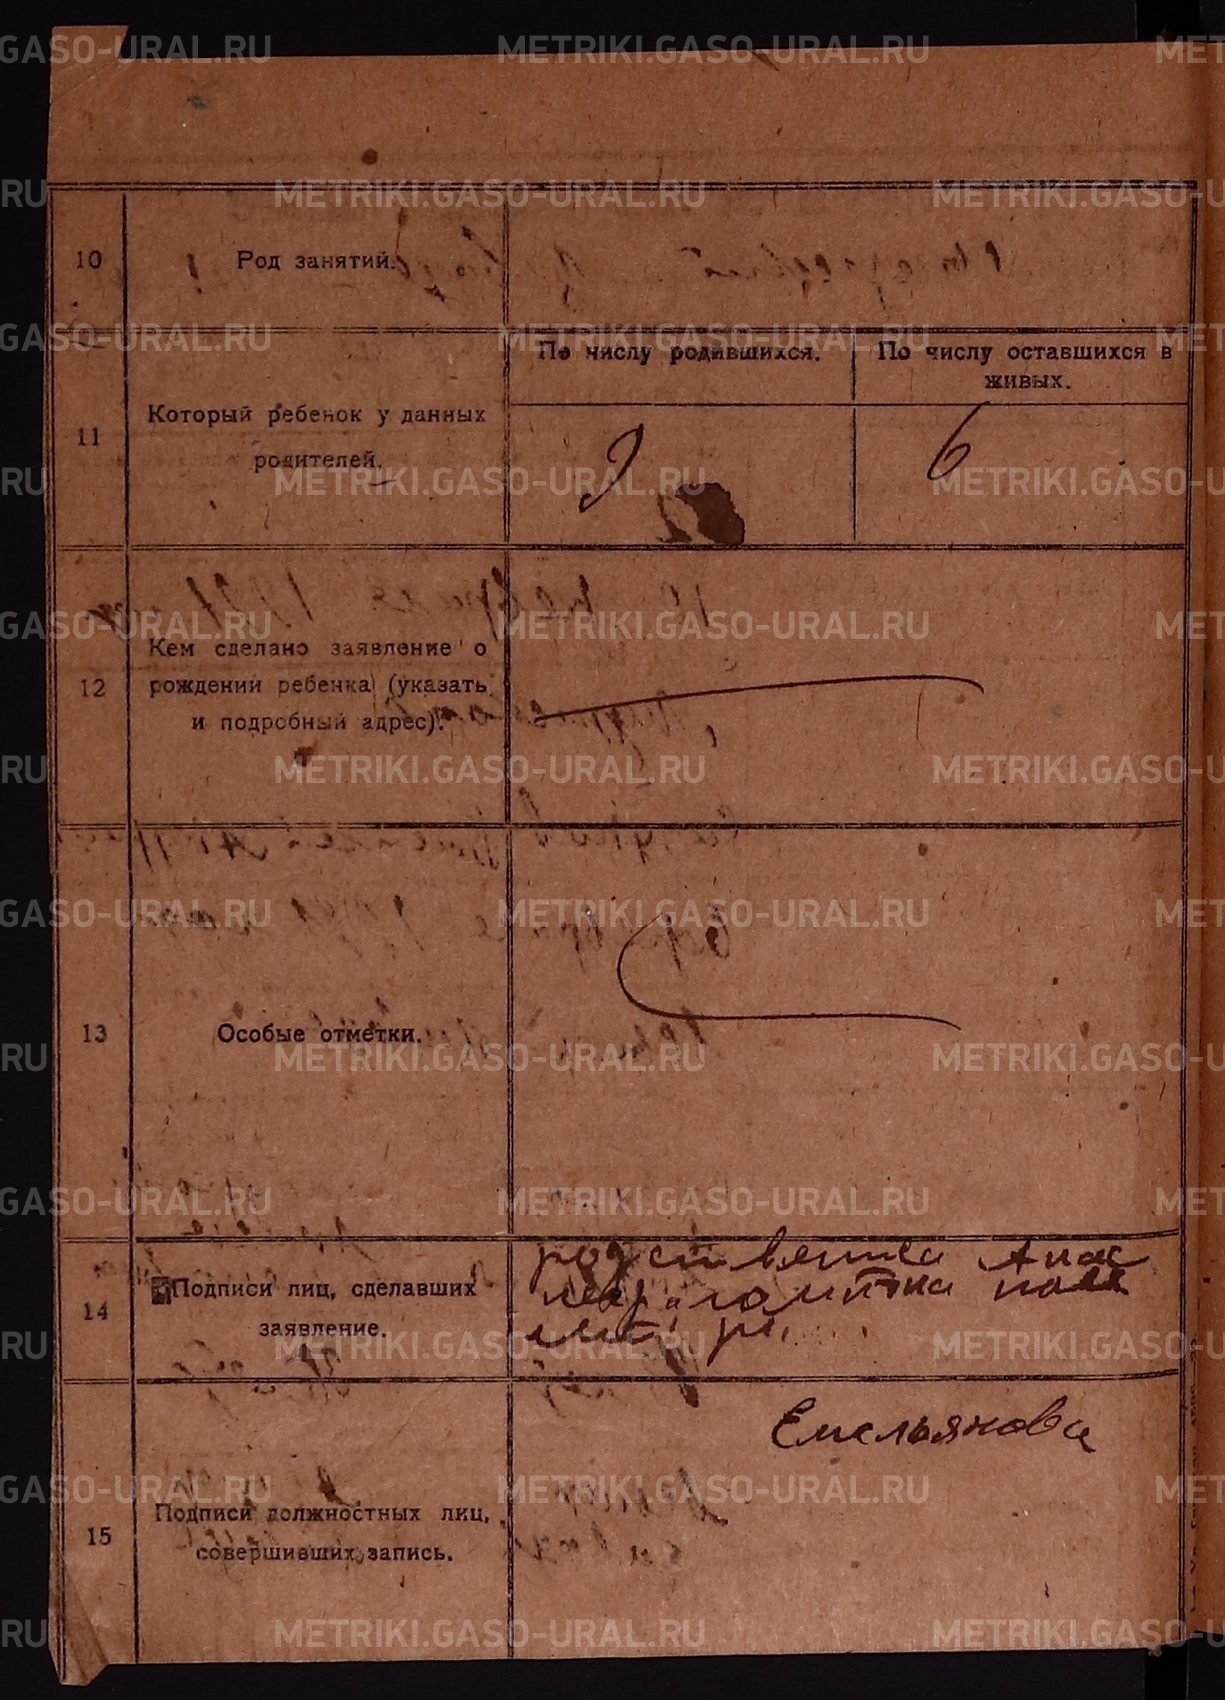 10 Род занятий.
11 Который ребенок у данных
родителей.
По числу родившихся.
По числу оставшихся в
живых.
9
6
12 Кем сделано заявление о
рождении ребенка (указать
и подробный адрес).
13 Особые отметки.
14 Подписи лиц, сделавших
заявление.
15 Подписи должностных лиц,
совершивших запись.
Емельянова
METRIKI.GASO-URAL.RU